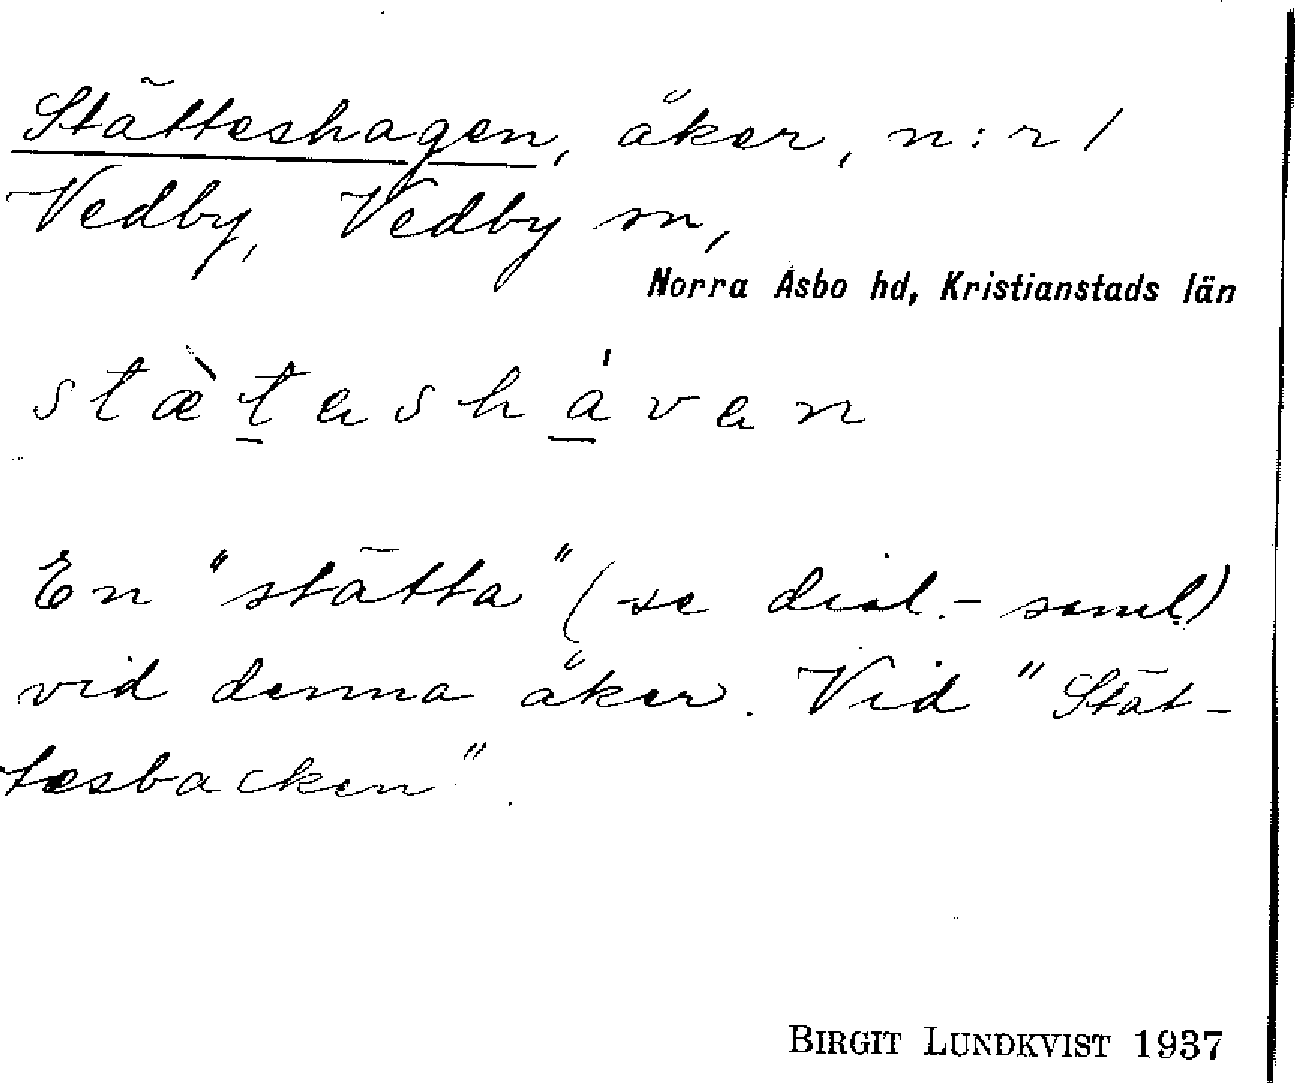 Stätteshagen, åker, n:r 1
Vedby, Vedby sn,
Norra Åsbo hd, Kristianstads län
stæ̀tashávan
En "stätta" (se dial.-saml.)
vid denna åker. Vid "Stät-
tesbacken".
BIRGIT LUNDKVIST 1937